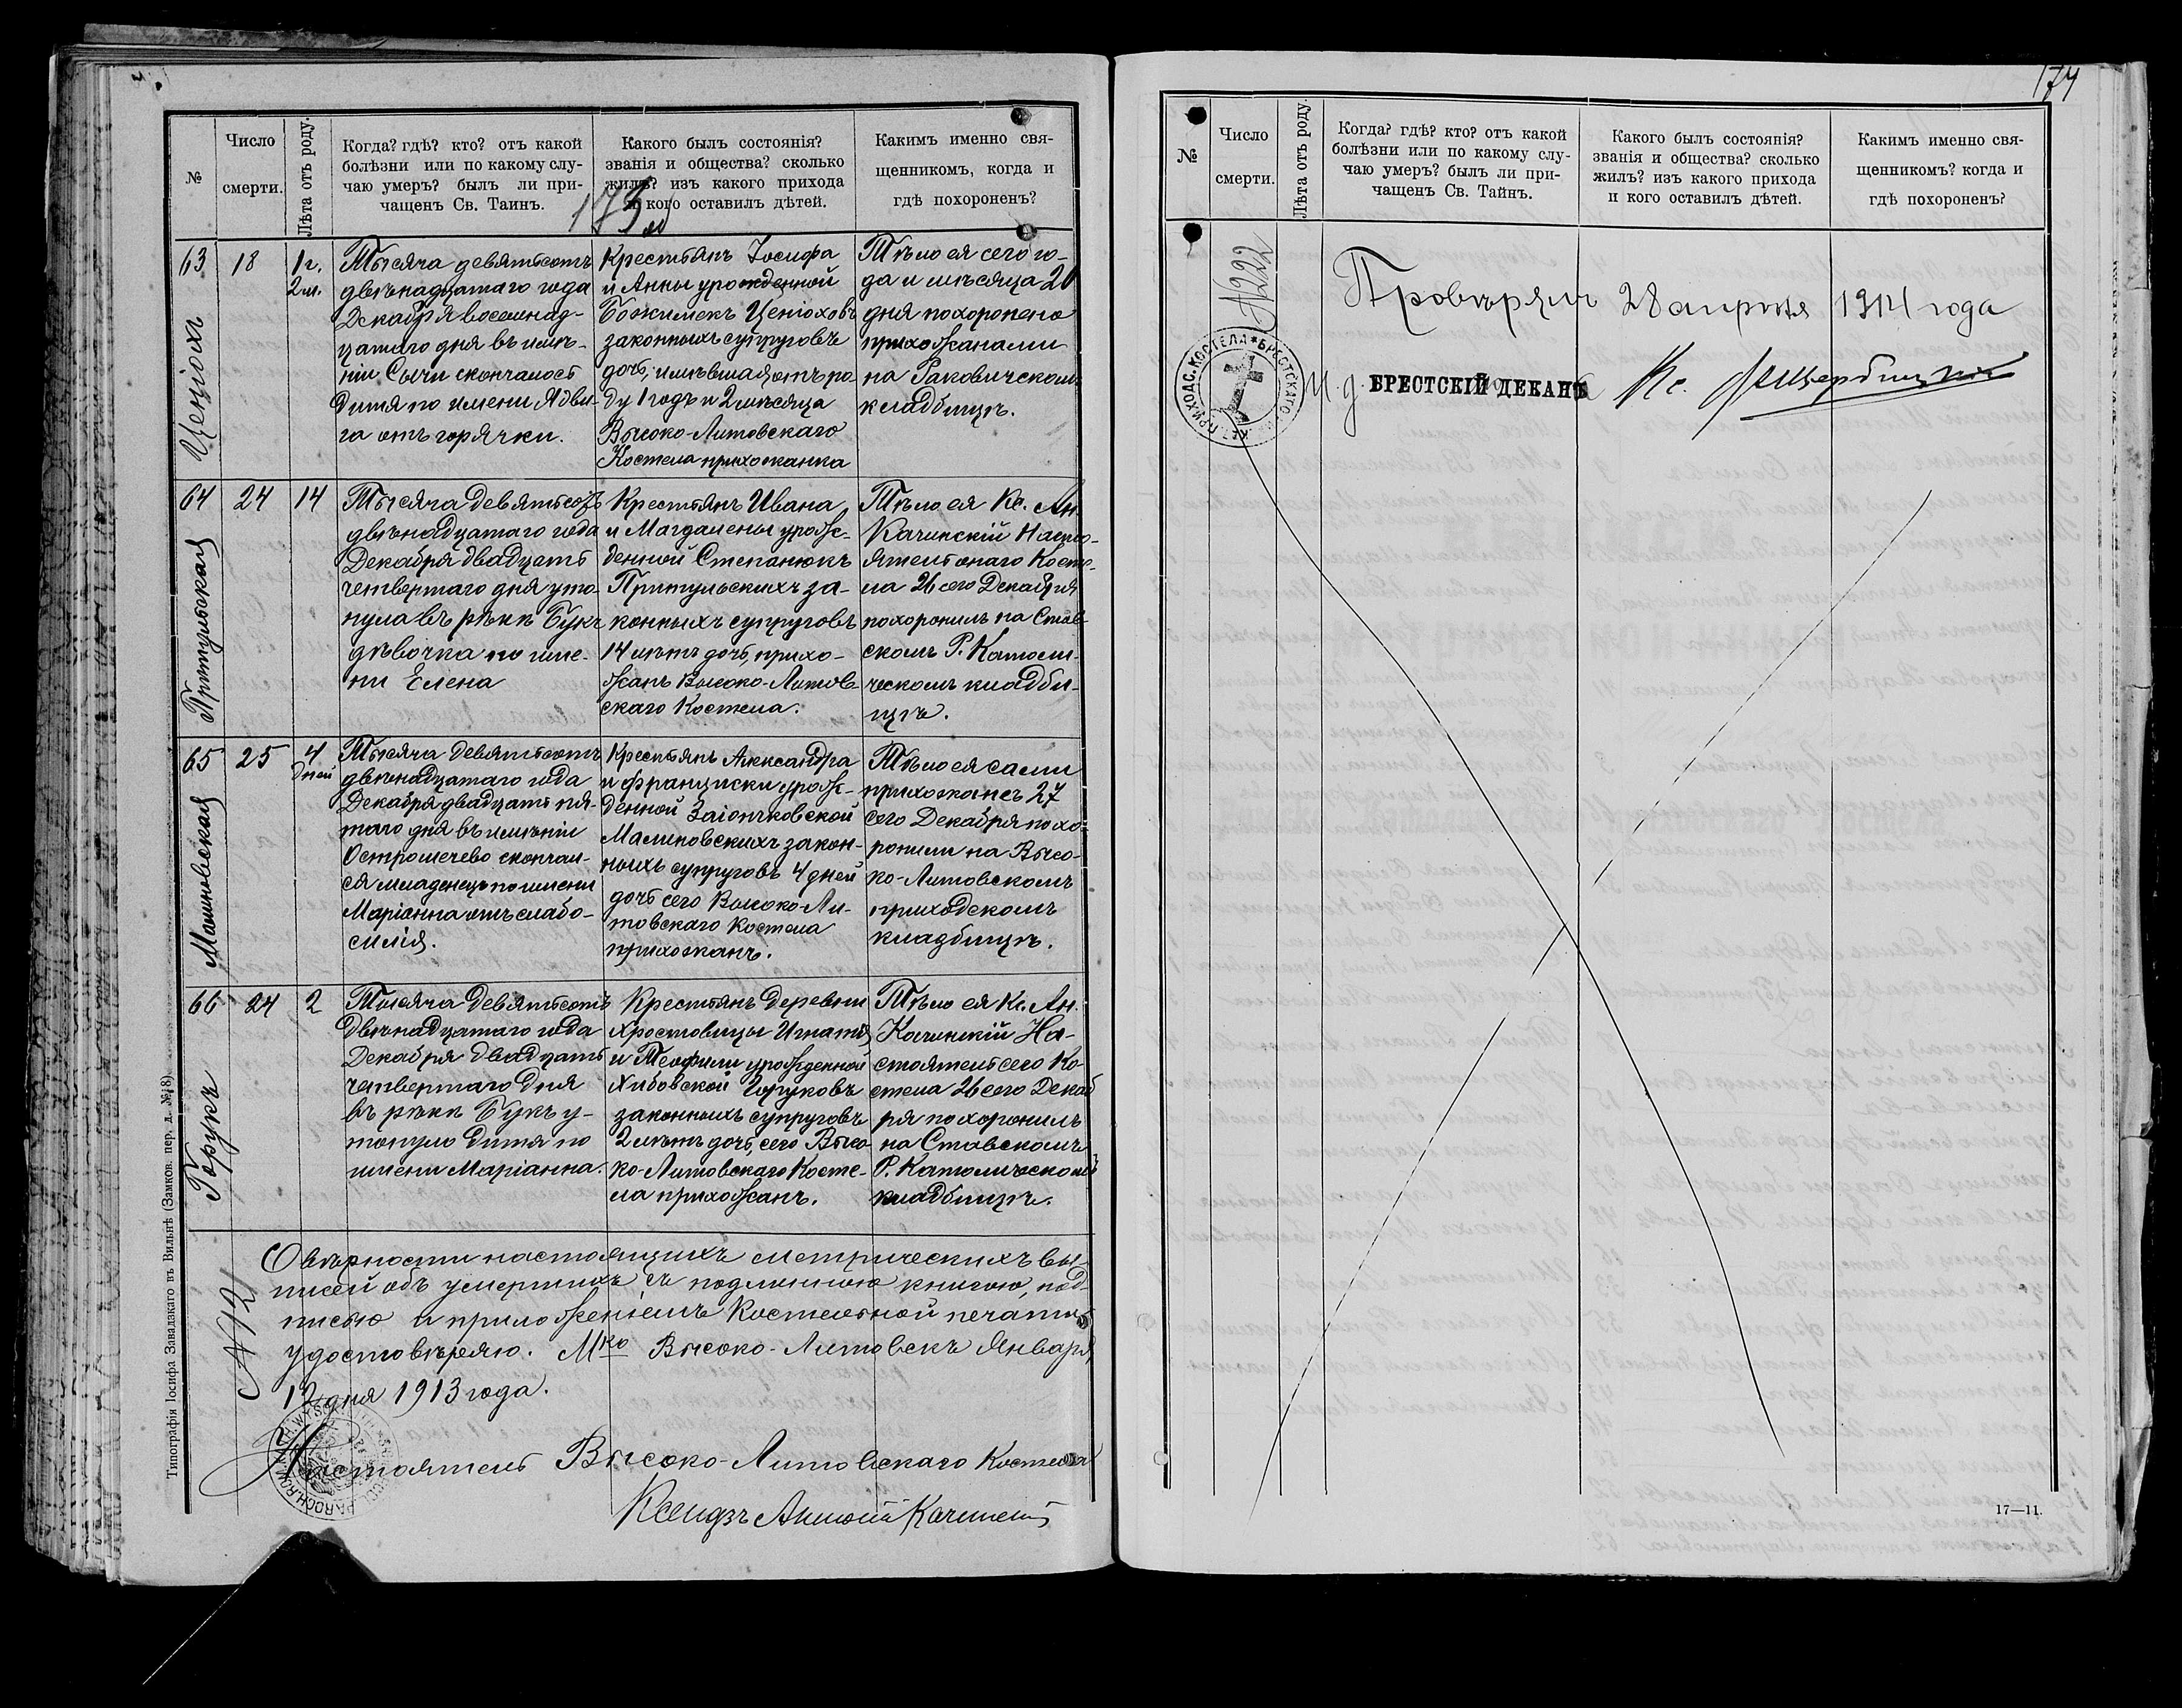 174
№
Число
смерти.
Лѣта отъ роду.
Когда? гдѣ? кто? отъ какой
болѣзни или по какому слу-
чаю умеръ? былъ ли при-
чащенъ Св. Таинъ.
Какого былъ состоянія?
званія и общества? сколько
жилъ? изъ какого прихода
и кого оставилъ дѣтей.
Какимъ именно свя-
щенникомъ, когда и
гдѣ похороненъ?
173
63
Ценіохъ
18
1 г.
2 м.
Тысяча девятьсотъ
двѣнадцатаго года
Декабря восемнад-
цатаго дня въ имѣ-
ніи Сычи скончалось
дитя по имени Ядви-
га отъ горячки.
Крестьянъ Іосифа
и Анны урожденной
Божимекъ Ценіоховъ
законныхъ супруговъ
дочь, имѣвшая отъ ро-
ду 1 годъ и 2 мѣсяца
Высоко-Литовскаго
Костела прихожанка
Тѣло ея сего го-
да и мѣсяца 20
дня похоронено
прихожанами
на Раковичскомъ
кладбищѣ.
64
Притульская
24
14
Тысяча девятьсотъ
двѣнадцатаго года
Декабря двадцать
четвертаго дня уто-
нула въ рѣкѣ Букъ
дѣвочка по име-
ни Елена
Крестьянъ Ивана
и Магдалены урож-
денной Степанюкъ
Притульскихъ за-
конныхъ супруговъ
14 лѣтъ дочь, прихо-
жанъ Высоко-Литов-
скаго Костела.
Тѣло ея Кс. Ан.
Качинскій Насто-
ятель онаго Косте-
ла 26 сего Декабря
похоронилъ на Став-
скомъ Р. Католи-
ческомъ кладби-
щѣ.
65
Малиновская
25
4
дней
Тысяча девятьсотъ
двѣнадцатаго года
Декабря двадцать пя-
таго дня въ имѣніи
Острошечево скончал-
ся младенецъ по имени
Маріанна отъ слабо-
силія.
Крестьянъ Александра
и Франциски урож-
денной Заіончковской
Малиновскихъ закон-
ныхъ супруговъ 4 дней
дочь сего Высоко-Ли-
товскаго Костела
прихожанъ.
Тѣло ея сами
прихожане 27
сего Декабря похо-
ронили на Высо-
ко-Литовскомъ
приходскомъ
кладбищѣ.
66
Горукъ
24
2
Тысяча девятьсотъ
двѣнадцатаго года
Декабря двадцать
четвертаго дня
въ рѣкѣ Букъ у-
тонуло дитя по
имени Маріанна.
Крестьянъ деревни
Хростовицы Игнатія
и Теофили урожденной
Хибовской Горуковъ
законныхъ супруговъ
2 лѣтъ дочь, сего Высо-
ко-Литовскаго Косте-
ла прихожанъ.
Тѣло ея Кс. Ан.
Качинскій На-
стоятель сего Ко-
стела 26 сего Декаб-
ря похоронилъ
на Ставскомъ
Р. Католическомъ
кладбищѣ.
№ 12
О вѣрности настоящихъ метрическихъ вы-
писей объ умершихъ съ подлинною книгою, под-
писью и приложеніемъ Костельной печати
удостовѣряю. Мко Высоко-Литовскъ Января
12 дня 1913 года.
Настоятель Высоко-Литовскаго Костела
Ксендзъ Антоній Качинскій
Типографія Іосифа Завадзкаго въ Вильнѣ (Замков. пер. д. №8)
№
Число
смерти.
Лѣта отъ роду.
Когда? гдѣ? кто? отъ какой
болѣзни или по какому слу-
чаю умеръ? былъ ли при-
чащенъ Св. Тайнъ.
Какого былъ состоянія?
званія и общества? сколько
жилъ? изъ какого прихода
и кого оставилъ дѣтей.
Какимъ именно свя-
щенникомъ? когда и
гдѣ похороненъ?
№222
Провѣрялъ 28 апрѣля 1914 года
И. д. БРЕСТСКІЙ ДЕКАНЪ Кс.
17—11.